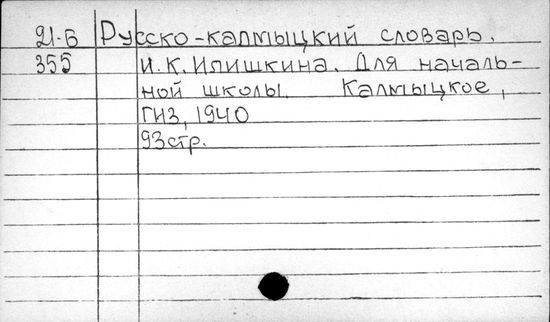 21-Б Русско-калмыцкий словарь.
355 И.К. Илишкина. Для началь-
ной школы. Калмыцкое,
ГИЗ, 1940
93стр.